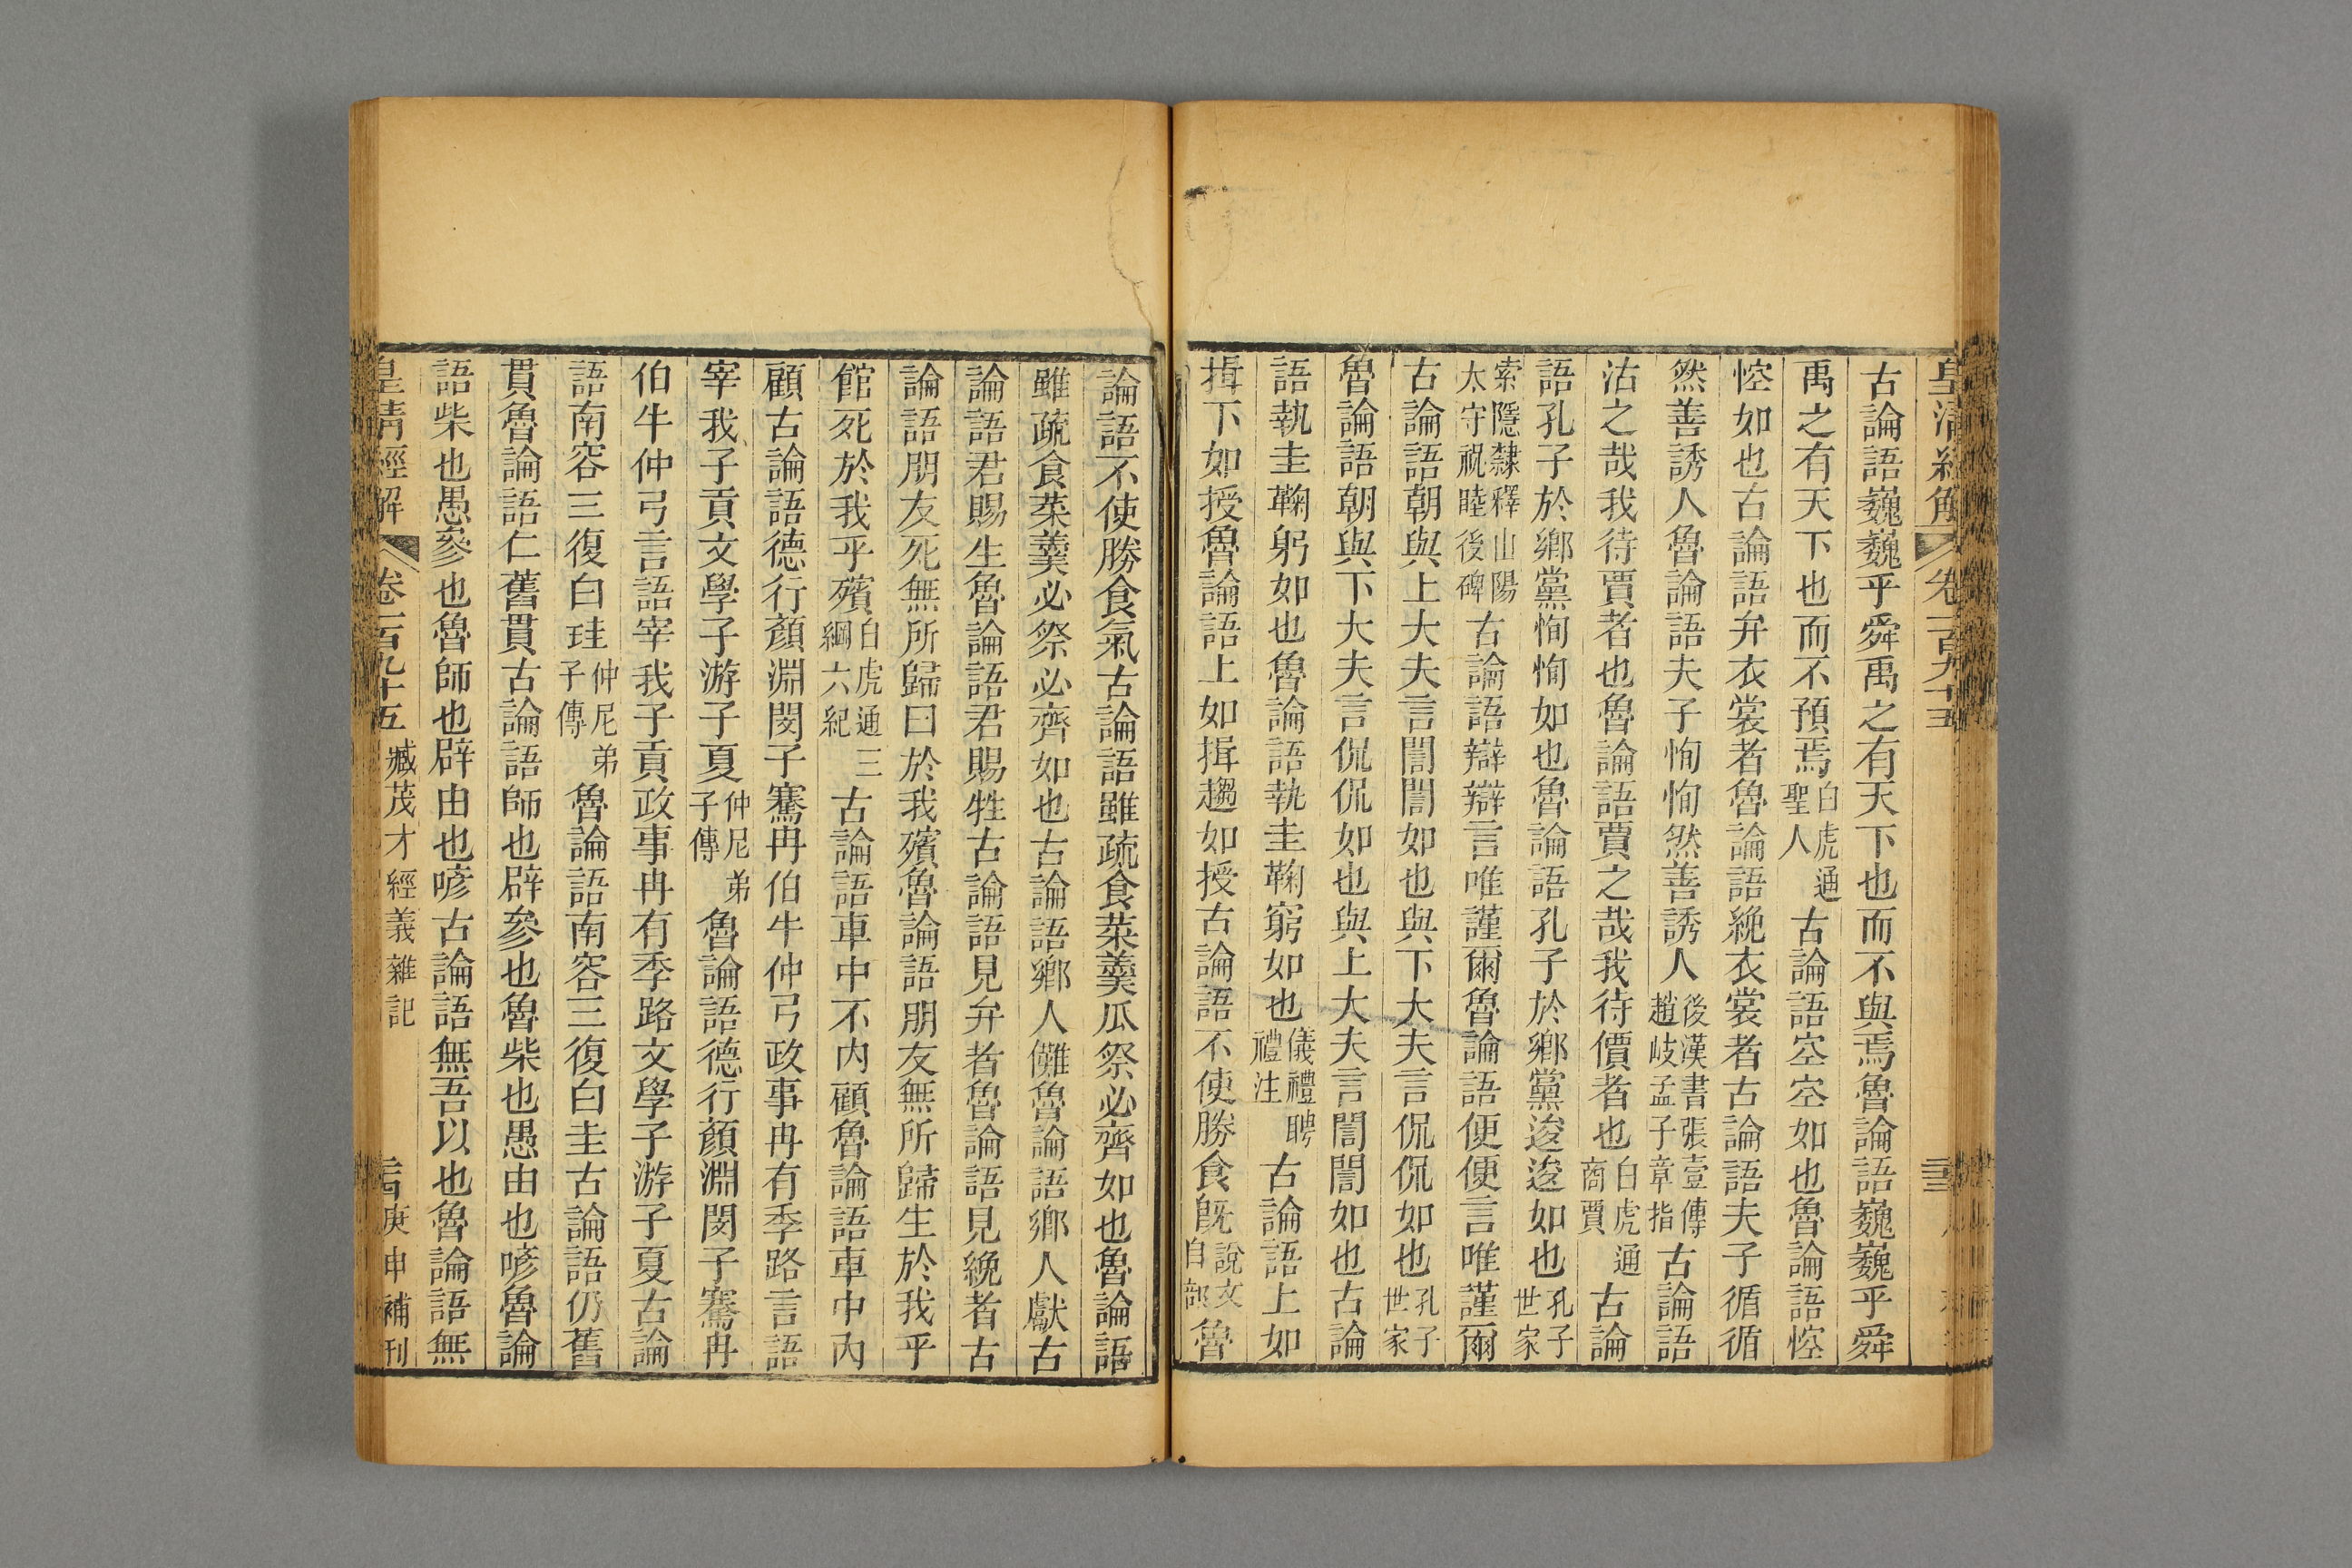 皇清經解 卷一百九十五
古論語巍巍乎舜禹之有天下也而不與焉魯論語巍巍乎舜
禹之有天下也而不預焉白虎通聖人古論語空空如也魯論語悾
悾如也古論語弁衣裳者魯論語絻衣裳者古論語夫子循循
然善誘人魯論語夫子恂恂然善誘人後漢書張壹傳趙岐孟子章指古論語
沽之哉我待賈者也魯論語賈之哉我待價者也白虎通商賈古論
語孔子於鄉黨恂恂如也魯論語孔子於鄉黨逡逡如也孔子世家
索隱隸釋山陽太守祝睦後碑古論語辯辯言唯謹爾魯論語便便言唯謹爾
古論語朝與上大夫言誾誾如也與下大夫言侃侃如也孔子世家
魯論語朝與下大夫言侃侃如也與上大夫言誾誾如也古論
語執圭鞠躬如也魯論語執圭鞠窮如也儀禮聘禮注古論語上如
揖下如授魯論語上如揖趨如授古論語不使勝食旣說文皀部魯
論語不使勝食氣古論語雖疏食菜羹瓜祭必齊如也魯論語
雖疏食菜羹必祭必齊如也古論語鄉人儺魯論語鄉人獻古
論語君賜生魯論語君賜牲古論語見弁者魯論語見絻者古
論語朋友死無所歸曰於我殯魯論語朋友無所歸生於我乎
館死於我乎殯白虎通三綱六紀古論語車中不內顧魯論語車中內
顧古論語德行顏淵閔子騫冉伯牛仲弓政事冉有季路言語
宰我子貢文學子游子夏仲尼弟子傳魯論語德行顏淵閔子騫冉
伯牛仲弓言語宰我子貢政事冉有季路文學子游子夏古論
語南容三復白珪仲尼弟子傳魯論語南容三復白圭古論語仍舊
貫魯論語仁舊貫古論語師也辟參也魯柴也愚由也喭魯論
語柴也愚參也魯師也辟由也喭古論語無吾以也魯論語無
皇清經解 卷一百九十五 臧茂才經義雜記 庚申補刊